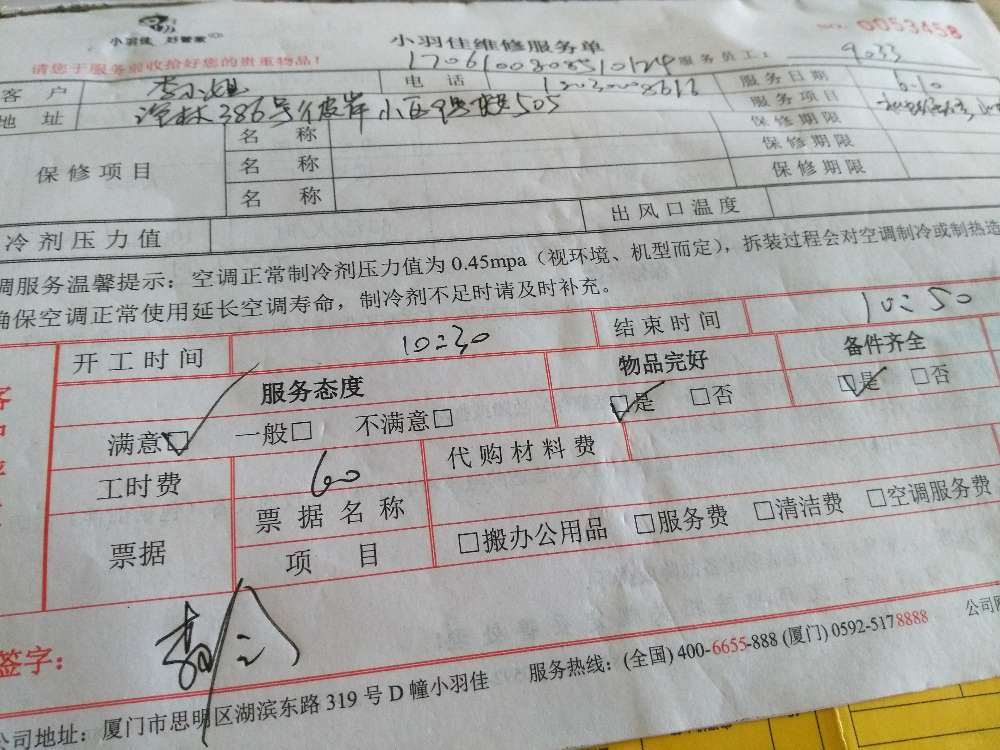 小羽佳 好管家
小羽佳维修服务单
0053458
请您于服务前收拾好您的贵重物品!
服务员工: 9033
客户 李小姐 电话 服务日期 6.10
地址 386号 彼岸小区 505 服务项目
保修项目 名称 保修期限
名称 保修期限
名称 保修期限
冷剂压力值 出风口温度
调服务温馨提示:空调正常制冷剂压力值为 0.45mpa(视环境、机型而定),拆装过程会对空调制冷或制热造
确保空调正常使用延长空调寿命,制冷剂不足时请及时补充。
开工时间 10:30 结束时间 10:50
服务态度 物品完好 备件齐全
满意□ 一般□ 不满意□ □是 □否 □是 □否
工时费 60 代购材料费
票据 票据名称
项目 □搬办公用品 □服务费 □清洁费 □空调服务费
签字:
公司地址:厦门市思明区湖滨东路 319 号 D 幢小羽佳 服务热线:(全国) 400-6655-888 (厦门) 0592-5178888 公司网